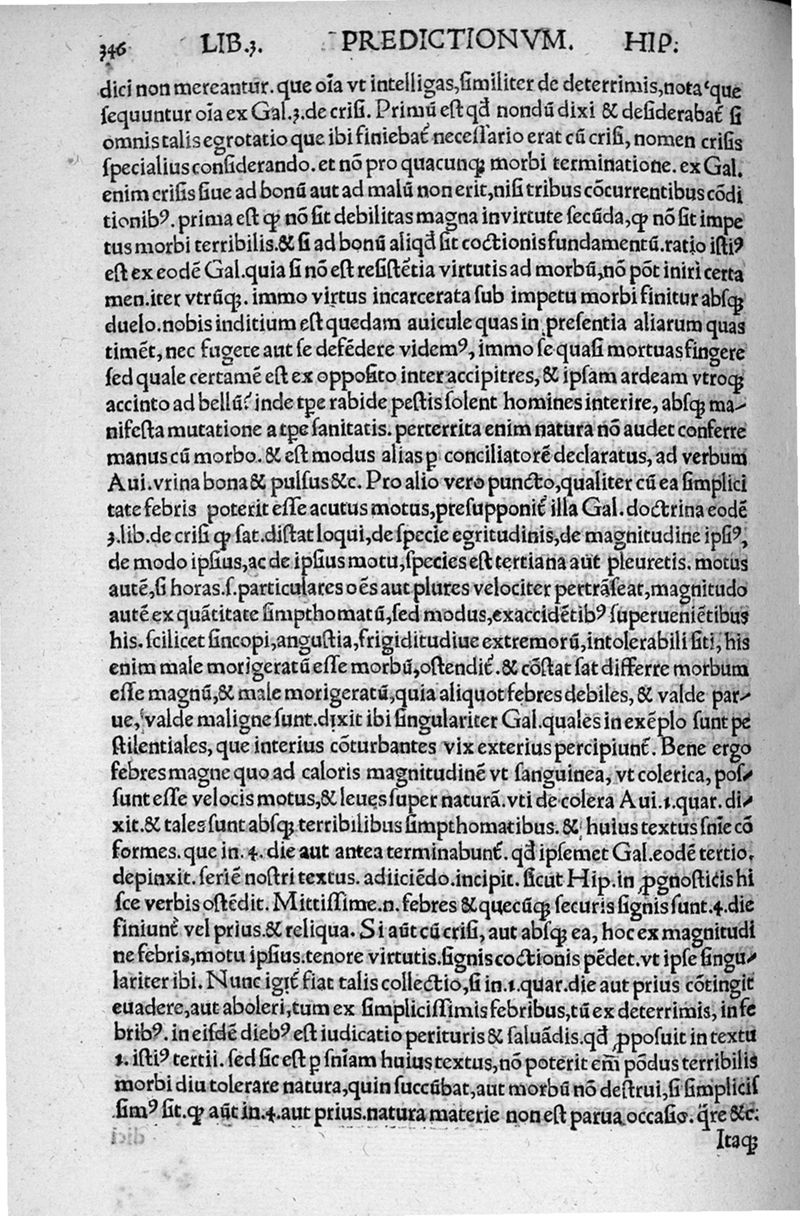 346 LIB.3. PREDICTIONVM. HIP:
dici non mereantur. que oĩa vt intelligas,similiter de deterrimis,nota que
sequuntur oĩa ex Gal.3.de crisi. Primũ est qđ nondũ dixi & desiderabat᷑ si
omnis talis egrotatio que ibi finiebat᷑ necessario erat cũ crisi, nomen crisis
specialius considerando. et nõ pro quacunqꝫ morbi terminatione. ex Gal.
enim crisis siue ad bonũ aut ad malũ non erit,nisi tribus cõcurrentibus cõdi
tionibꝰ. prima est ꝙ nõ sit debilitas magna in virtute secũda,ꝙ nõ sit impe
tus morbi terribilis.& si ad bonũ aliqđ sit coctionis fundamentũ.ratio istiꝰ
est ex eodẽ Gal.quia si nõ est resistẽtia virtutis ad morbũ,nõ põt iniri certa
men.iter vtrũqꝫ. immo virtus incarcerata sub impetu morbi finitur absqꝫ
duelo.nobis inditium est quedam auicule quas in presentia aliarum quas
timẽt, nec fugere aut se defẽdere videmꝰ, immo se quasi mortuas fingere
sed quale certamẽ est ex opposito inter accipitres, & ipsam ardeam vtroqꝫ
accinto ad bellũ? inde tꝑe rabide pestis solent homines interire, absqꝫ ma-
nifesta mutatione a tꝑe sanitatis. perterrita enim natura nõ audet conferre
manus cũ morbo. & est modus alias ꝑ conciliatorẽ declaratus, ad verbum
Aui.vrina bona & pulsus &c. Pro alio vero puncto,qualiter cũ ea simplici
tate febris poterit esse acutus motus,presupponit᷑ illa Gal.doctrina eodẽ
3.lib.de crisi ꝙ sat.distat loqui,de specie egritudinis,de magnitudine ipsiꝰ,
de modo ipsius,ac de ipsius motu,species est tertiana aut pleuretis. motus
autẽ,si horas.s.particulares oẽs aut plures velociter pertrãseat,magnitudo
autẽ ex quãtitate simpthomatũ,sed modus,ex accidẽtibꝰ superueniẽtibus
his. scilicet sincopi,angustia,frigiditudiue extremorũ,intolerabili siti, his
enim male morigeratũ esse morbũ,ostendit᷑.& cõstat sat differre morbum
esse magnũ,& male morigeratũ,quia aliquot febres debiles, & valde par-
ue, valde maligne sunt.dixit ibi singulariter Gal.quales in exẽplo sunt pe
stilentiales, que interius cõturbantes vix exterius percipiunt᷑. Bene ergo
febres magne quo ad caloris magnitudinẽ vt sanguinea, vt colerica, pos-
sunt esse velocis motus,& leues super naturã.vti de colera Aui.1.quar. di-
xit.& tales sunt absqꝫ terribilibus simpthomatibus. & huius textus sñie cõ
formes. que in. 4. die aut antea terminabunt᷑. qđ ipsemet Gal.eodẽ tertio.
depinxit. seriẽ nostri textus. adiiciẽdo.incipit. sicut Hip.in ꝓgnosticis hi
sce verbis ostẽdit. Mittissime.n.febres & quecũqꝫ securis signis sunt.4.die
finiunt᷑ vel prius.& reliqua. Si aũt cũ crisi, aut absqꝫ ea, hoc ex magnitudi
ne febris,motu ipsius.tenore virtutis.signis coctionis pẽdet.vt ipse singu-
lariter ibi. Nunc igit᷑ fiat talis collectio,si in.1.quar.die aut prius cõtingit
euadere,aut aboleri,tum ex simplicissimis febribus,tũ ex deterrimis, in fe
bribꝰ. in eisdẽ diebꝰ est iudicatio perituris & saluãdis.qđ ꝓposuit in textu
1. istiꝰ tertii. sed sic est ꝑ sñiam huius textus,nõ poterit em̃ põdus terribilis
morbi diu tolerare natura,quin succũbat,aut morbũ nõ destrui,si simplicis
simꝰ sit.ꝙ aũt in.4.aut prius.natura materie non est parua occasio. q̃re &c:
Itaqꝫ